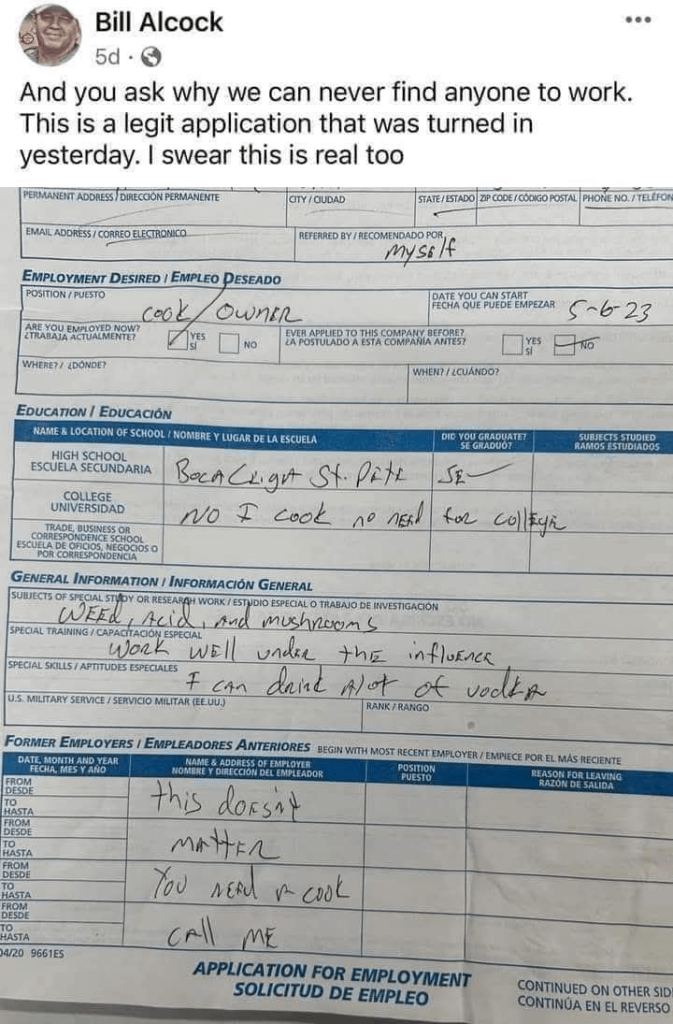 Bill Alcock
5d ·
And you ask why we can never find anyone to work.
This is a legit application that was turned in
yesterday. I swear this is real too
PERMANENT ADDRESS / DIRECCIÓN PERMANENTE CITY / CIUDAD STATE / ESTADO ZIP CODE / CÓDIGO POSTAL PHONE NO. / TELÉFON
EMAIL ADDRESS / CORREO ELECTRONICO REFERRED BY / RECOMENDADO POR
myself
EMPLOYMENT DESIRED / EMPLEO DESEADO
POSITION / PUESTO
cook / OWNER
DATE YOU CAN START
FECHA QUE PUEDE EMPEZAR
5-6-23
ARE YOU EMPLOYED NOW?
¿TRABAJA ACTUALMENTE?
YES
SÍ
NO
EVER APPLIED TO THIS COMPANY BEFORE?
¿A POSTULADO A ESTA COMPAÑÍA ANTES?
YES
SÍ
NO
WHERE? / ¿DÓNDE? WHEN? / ¿CUÁNDO?
EDUCATION / EDUCACIÓN
NAME & LOCATION OF SCHOOL / NOMBRE Y LUGAR DE LA ESCUELA
DID YOU GRADUATE?
SE GRADUÓ?
SUBJECTS STUDIED
RAMOS ESTUDIADOS
HIGH SCHOOL
ESCUELA SECUNDARIA
St. Pete
COLLEGE
UNIVERSIDAD
NO I cook no need for college
TRADE, BUSINESS OR
CORRESPONDENCE SCHOOL
ESCUELA DE OFICIOS, NEGOCIOS O
POR CORRESPONDENCIA
GENERAL INFORMATION / INFORMACIÓN GENERAL
SUBJECTS OF SPECIAL STUDY OR RESEARCH WORK / ESTUDIO ESPECIAL O TRABAJO DE INVESTIGACIÓN
WEED, Acid, And mushrooms
SPECIAL TRAINING / CAPACITACIÓN ESPECIAL
Work WELL under thE influENCE
SPECIAL SKILLS / APTITUDES ESPECIALES
I CAN drink Alot of vodkA
U.S. MILITARY SERVICE / SERVICIO MILITAR (EE.UU.) RANK / RANGO
FORMER EMPLOYERS / EMPLEADORES ANTERIORES BEGIN WITH MOST RECENT EMPLOYER / EMPIECE POR EL MÁS RECIENTE
DATE, MONTH AND YEAR
FECHA, MES Y AÑO
NAME & ADDRESS OF EMPLOYER
NOMBRE Y DIRECCIÓN DEL EMPLEADOR
POSITION
PUESTO
REASON FOR LEAVING
RAZÓN DE SALIDA
FROM
DESDE
this doEsn't
TO
HASTA
FROM
DESDE
MAttER
TO
HASTA
FROM
DESDE
You NEEd A cook
TO
HASTA
FROM
DESDE
CAll ME
TO
HASTA
04/20 9661ES
APPLICATION FOR EMPLOYMENT
SOLICITUD DE EMPLEO
CONTINUED ON OTHER SID
CONTINÚA EN EL REVERSO